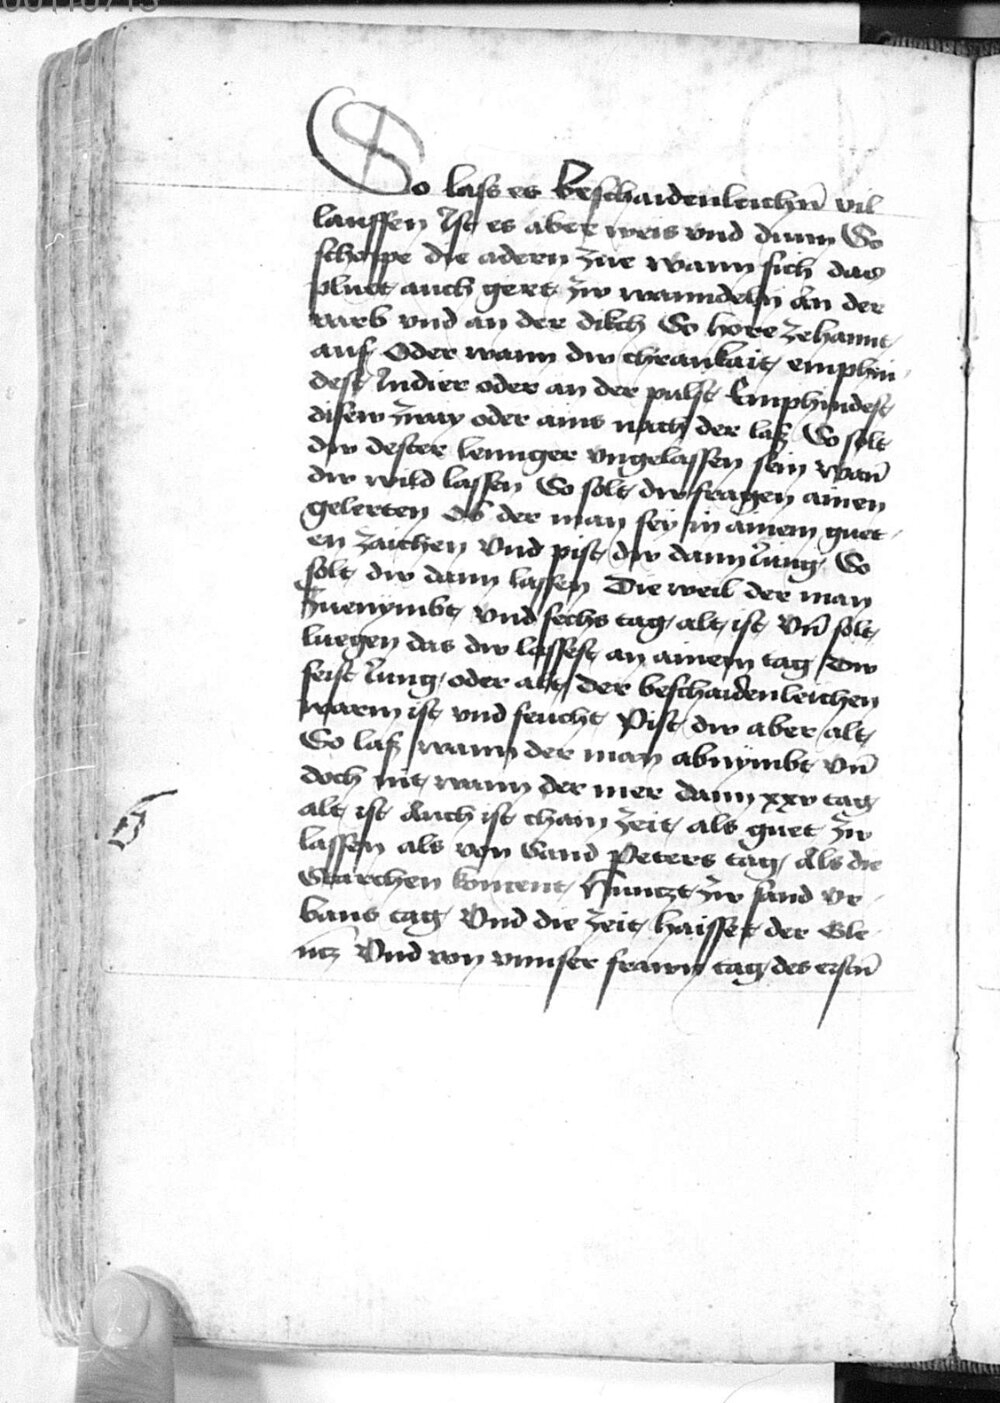 So lass es beschaidenleichn̄ vil
lauffen Ist es aber weis vnd dunn So
schoppe die adern zue wann sich das
pluet auch gert zw wanndeln An der
varb vnd an der dikch So hore zehannt
auf Oder wann dw chrankait emphin
dest Indier oder an der pulst Emphindest
disew zway oder ains nach der laß So solt
dw dester lennger vngelassen sein wan̄
dw wild lassen So solt dw fragen ainen
gelerten Ob der man sey in ainem guet
en zaichen Vnd pist dw dann Iung So
solt dw dann lassen Die weil der man
zuenymbt vnd sechs tag alt ist Vn̄ solt
luegen das dw lassest an ainem tag Dw
seist Iung oder alt der beschaidenleichen
warm ist vnd feucht Pist dw aber alt
So laß wann der man abnymbt Vn̄
doch nit wann der mer dann xxv tag
alt ist Auch ist chain zeit als guet zw
lassen als von Sand Peters tag Als die
Starchen koment Huntzt zw sand vr
bans tag Vnd die zeit haisset der Gle
ntz Vnd von vnnser frawn tag des erstn̄